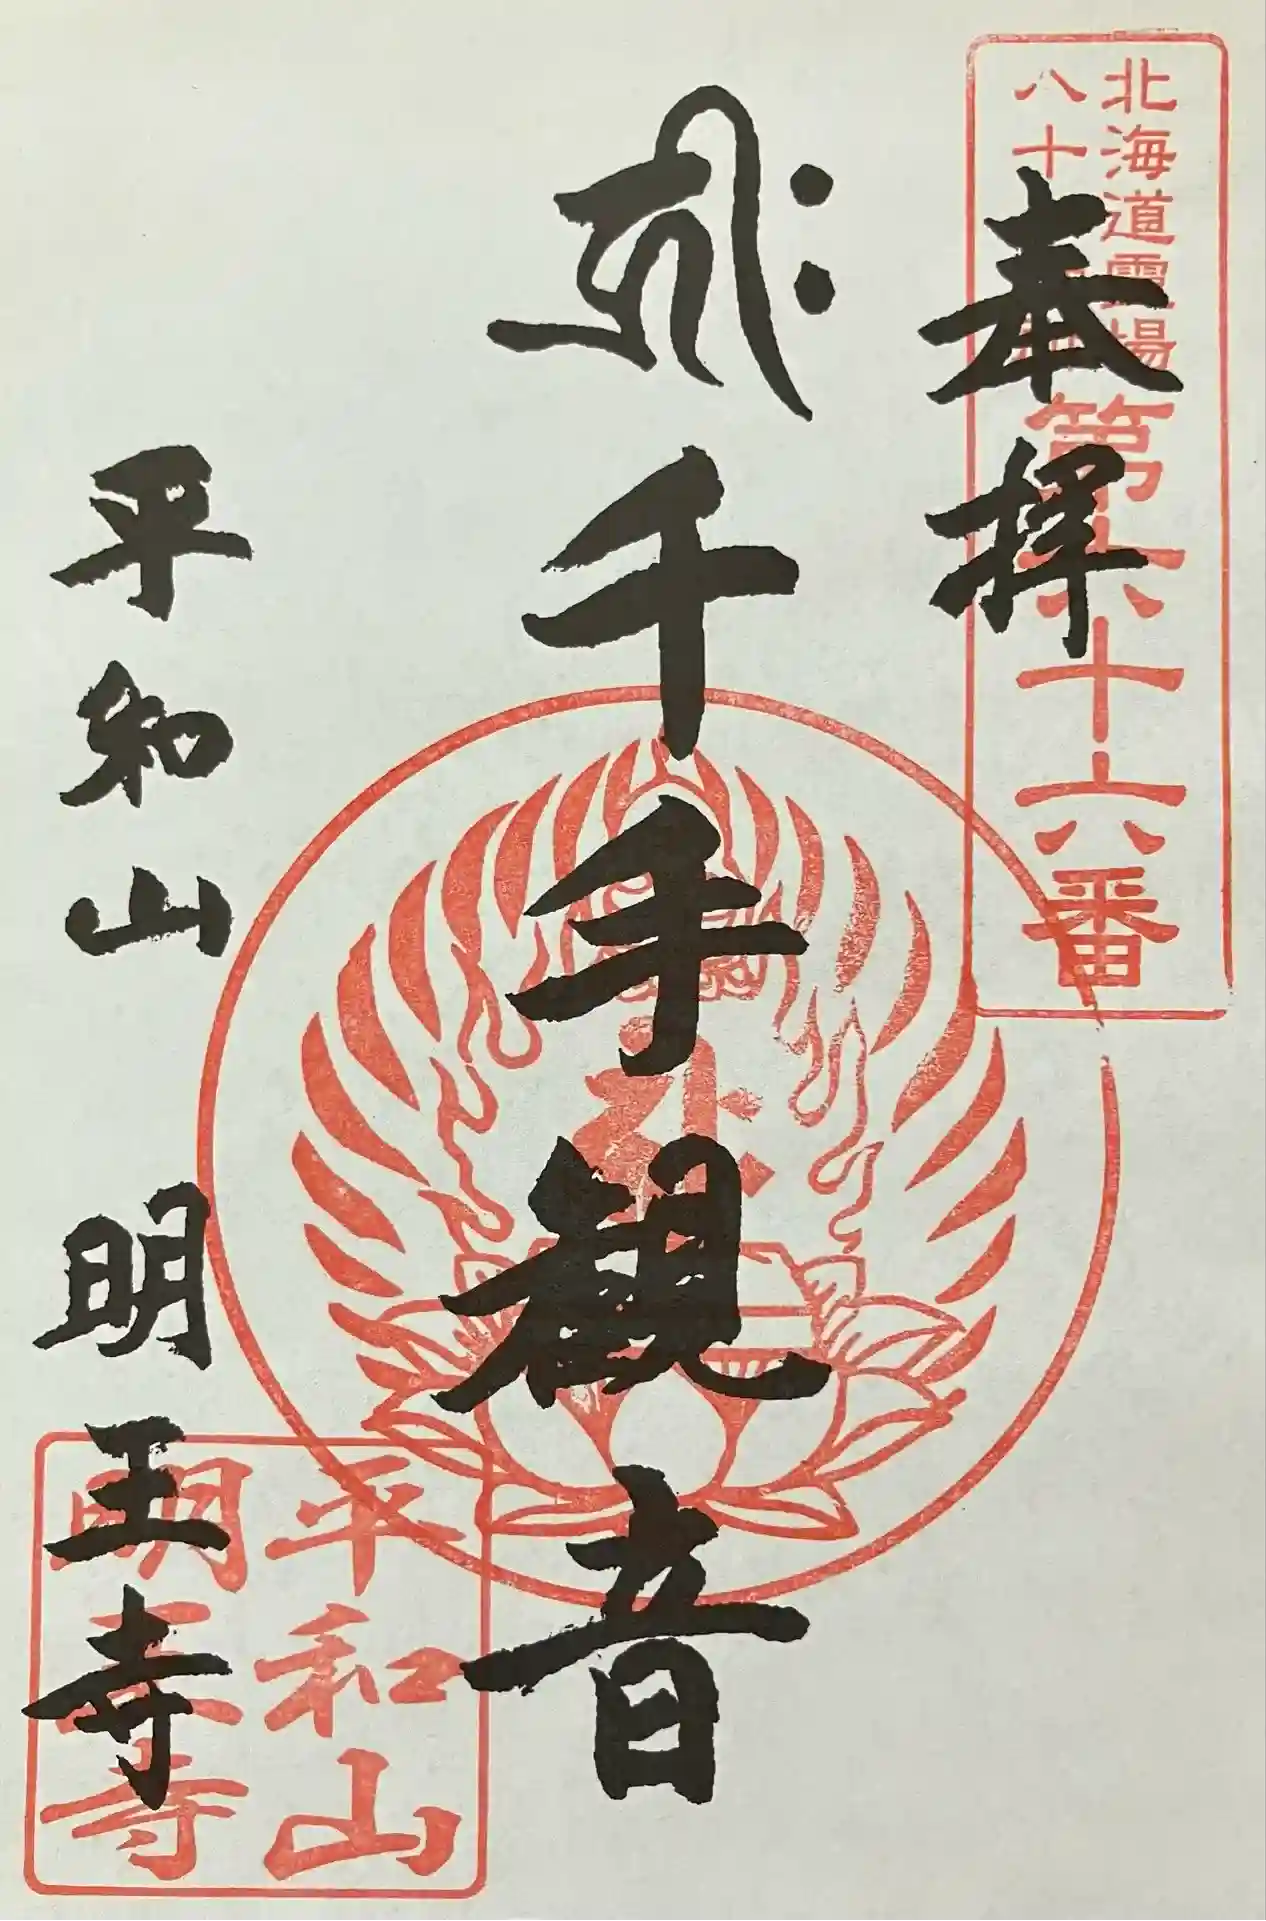 北海道霊場
八十
第六十六番
奉拝
𑖮𑖿𑖨𑖱𑖾
千手観音
平和山 明王寺
平和山
明王寺